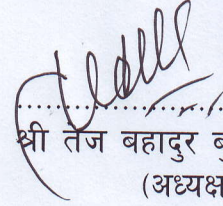 श्री तेज बहादुर
(अध्यक्ष